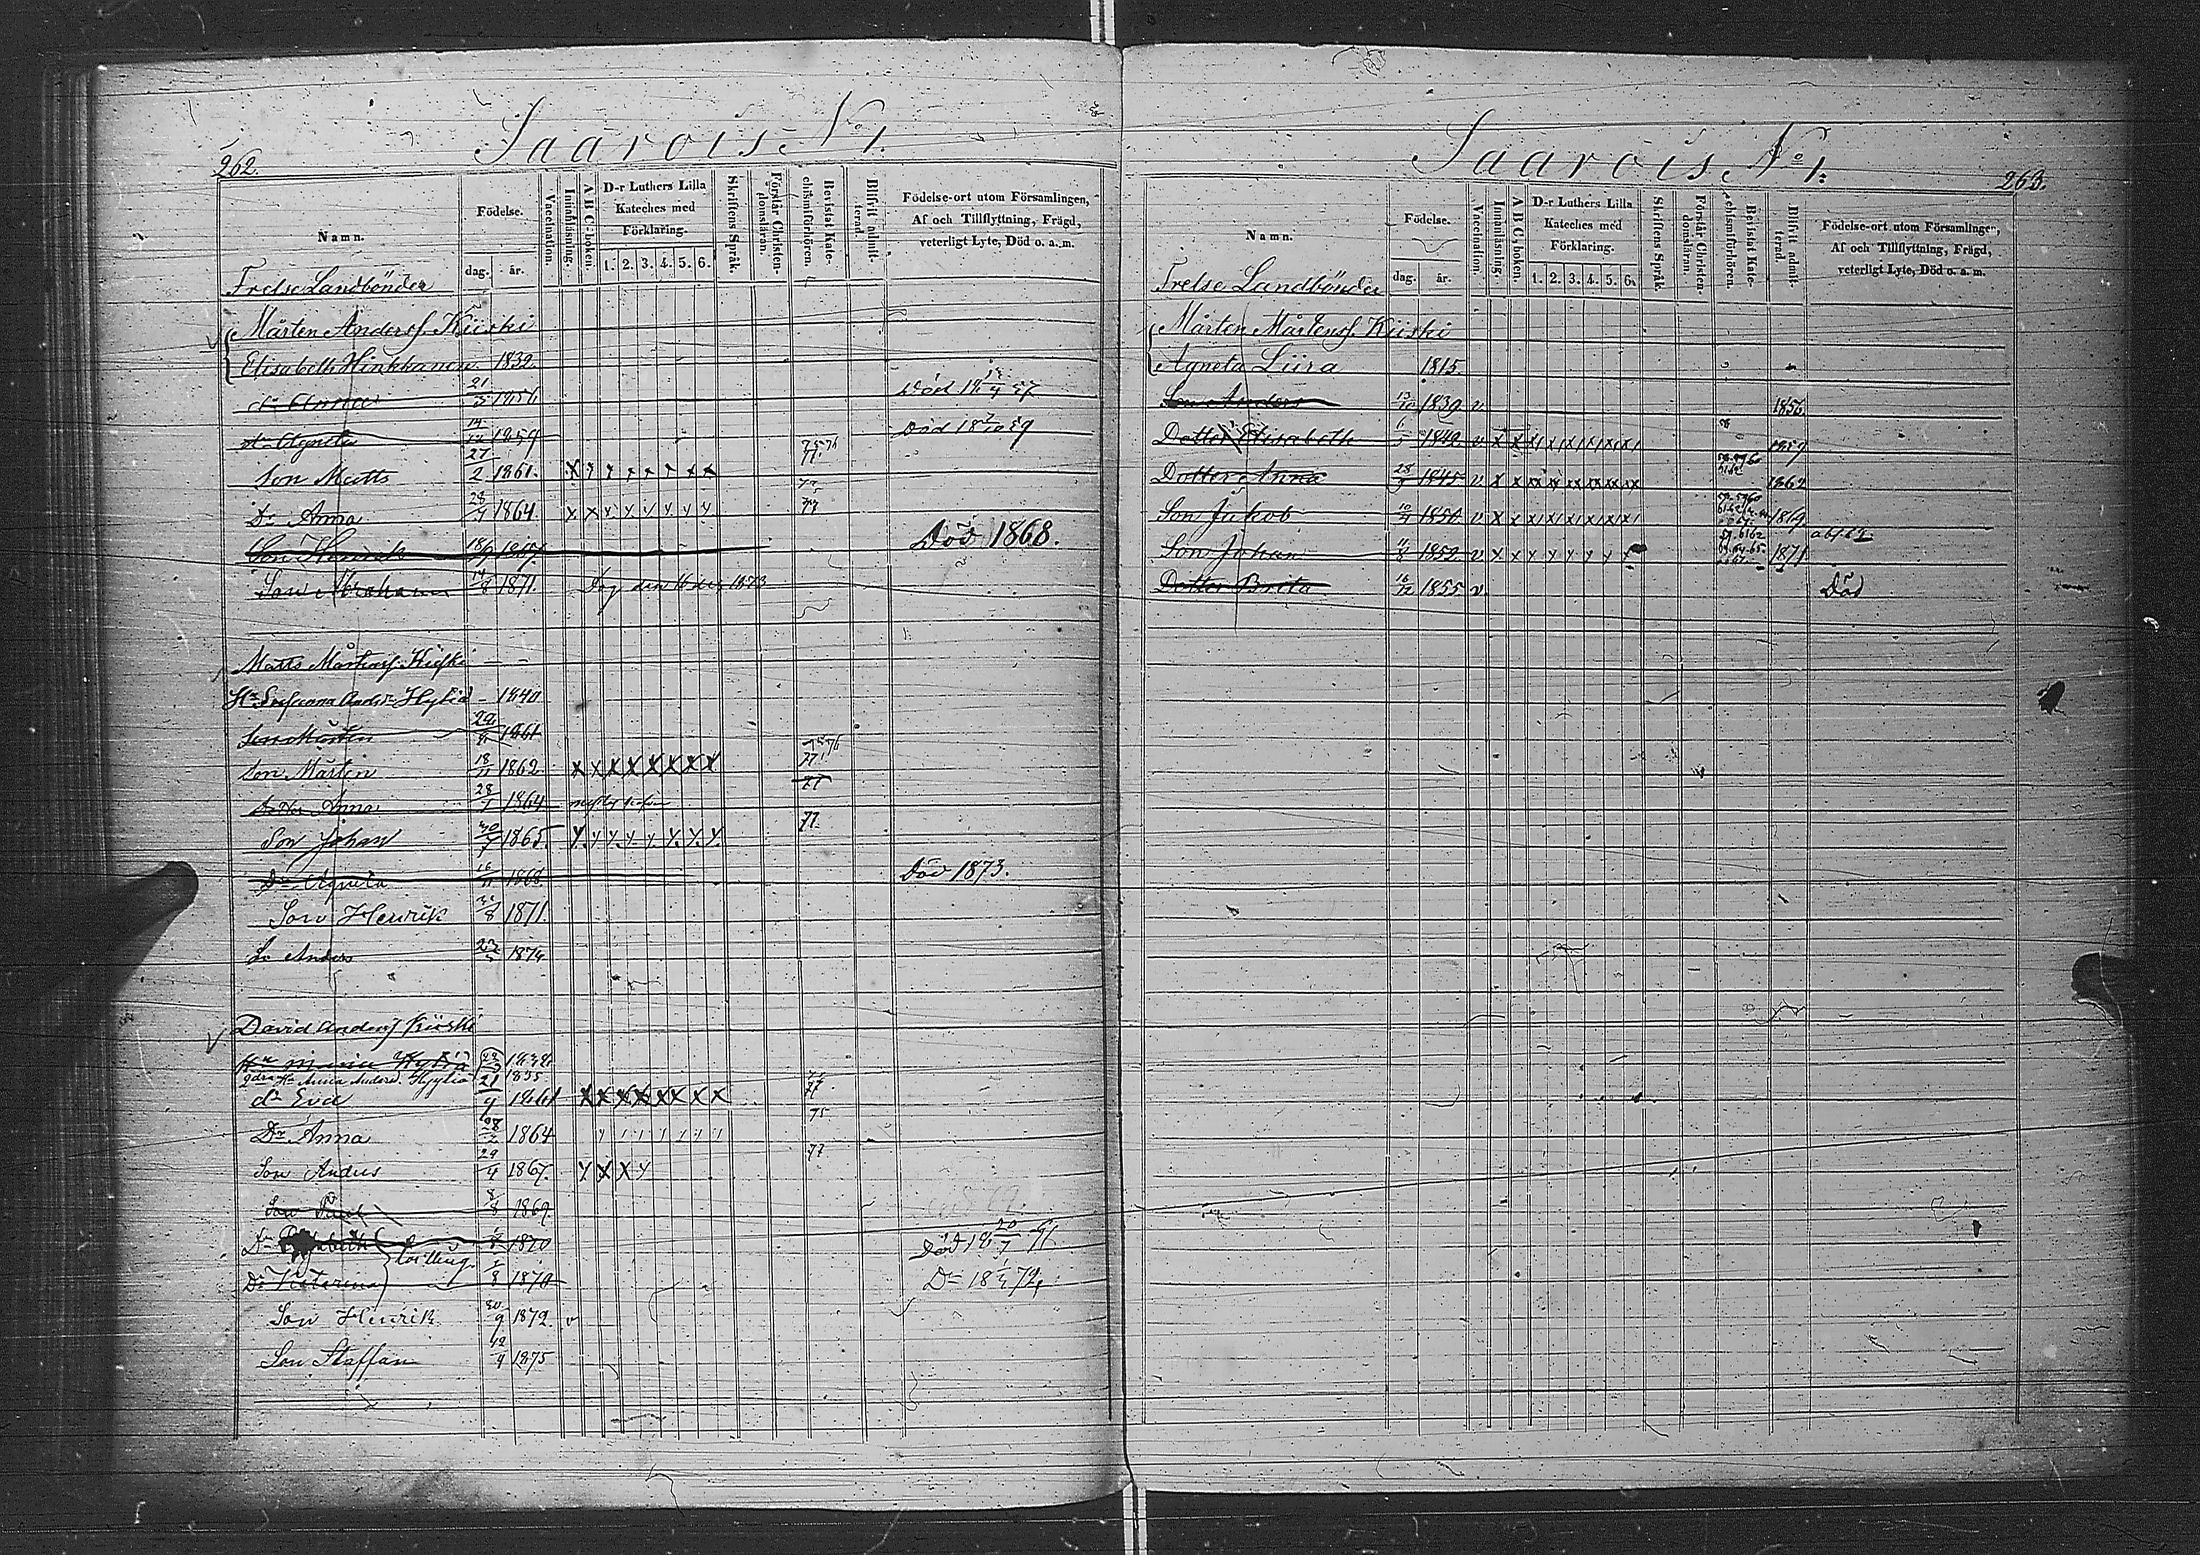 262.
Saarois No 1.
Namn.
Födelse.
dag. år.
Vaccination.
Innanläsning.
A B C-boken.
D-r Luthers Lilla Kateches med Förklaring.
1. 2. 3. 4. 5. 6.
Skriftens Språk.
Förstår Christendomsläran.
Bevistat Katechismiförhören.
Blifvit admitterad.
Födelse-ort utom Församlingen, Af och Tillflyttning, Frägd, veterligt Lyte, Död o. a. m.
Frelse Landbönder
Mårten Andersf. Kiiski
Elisabeth Hinkkanen. 1832.
dr Anna 21/3 1856 Död
dr Agneta 1859 Död
Son Matts 27/2 1861. 75 76 77.
Dr Anna 28/4 1864. x x y y y y y y 77
Son Henrik 18/9 1867. Död 1868.
Son Abraham 14/8 1871. Dog den 16 1873
Matts Mårtensf. Kiiski
Hu Susanna Andsdr Hyliä - 1840
Son Mårten 1861
Son Mårten 18/11 1862 x x x x x x x x 75 76 77.
Dotter Anna 28/1 1864 77
Son Johan 30/7 1865. y y y y y y y y 77.
Dr Agneta 16/11 1868 Död 1873.
Son Henrik 8 1871.
So Anders 23/5 1874
David Andersf Kiiski
Hu Maria Hyliä
2dra Hu Anna Andersd. Hyyliä 1835
dr Eva 21/9 1861 x x x x x x x x 77
Dr Anna 28/2 1864 75
Son Anders 29/4 1867. y x x y 77
Son Paul 8/8 1869.
Dr Elisabeth 1870 Död 18 20/7 71
tvilling.
Dr Katarina 1/8 1870 Dr 18 72
Son Henrik 30/9 1872. v
Son Staffan 12/4 1875
Saarois No 1.
263.
Namn.
Födelse.
dag. år.
Vaccination.
Innanläsning.
A B C, boken.
D-r Luthers Lilla Kateches med Förklaring.
1. 2. 3. 4. 5. 6.
Skriftens Språk.
Förstår Christendomsläran.
Bevistat Katechismiförhören.
Blifvit admitterad.
Födelse-ort utom Församlingen, Af och Tillflyttning, Frägd, veterligt Lyte, Död o. a. m.
Frelse Landbönder
Mårten Mårtensf. Kiiski
Agneta Liira 1815.
Son Anders 1839. v 1856
Dotter Elisabeth 1842. v x x x x x x x x 1859
Dotter Anna 28/3 1845 v x x x x x x x x 1862
Son Jakob 10/4 1850. v x x x x x x x x 1869
Son Johan 11/8 1852. v x x y y y y y 1871
Dotter Brita 16/12 1855 v. Död